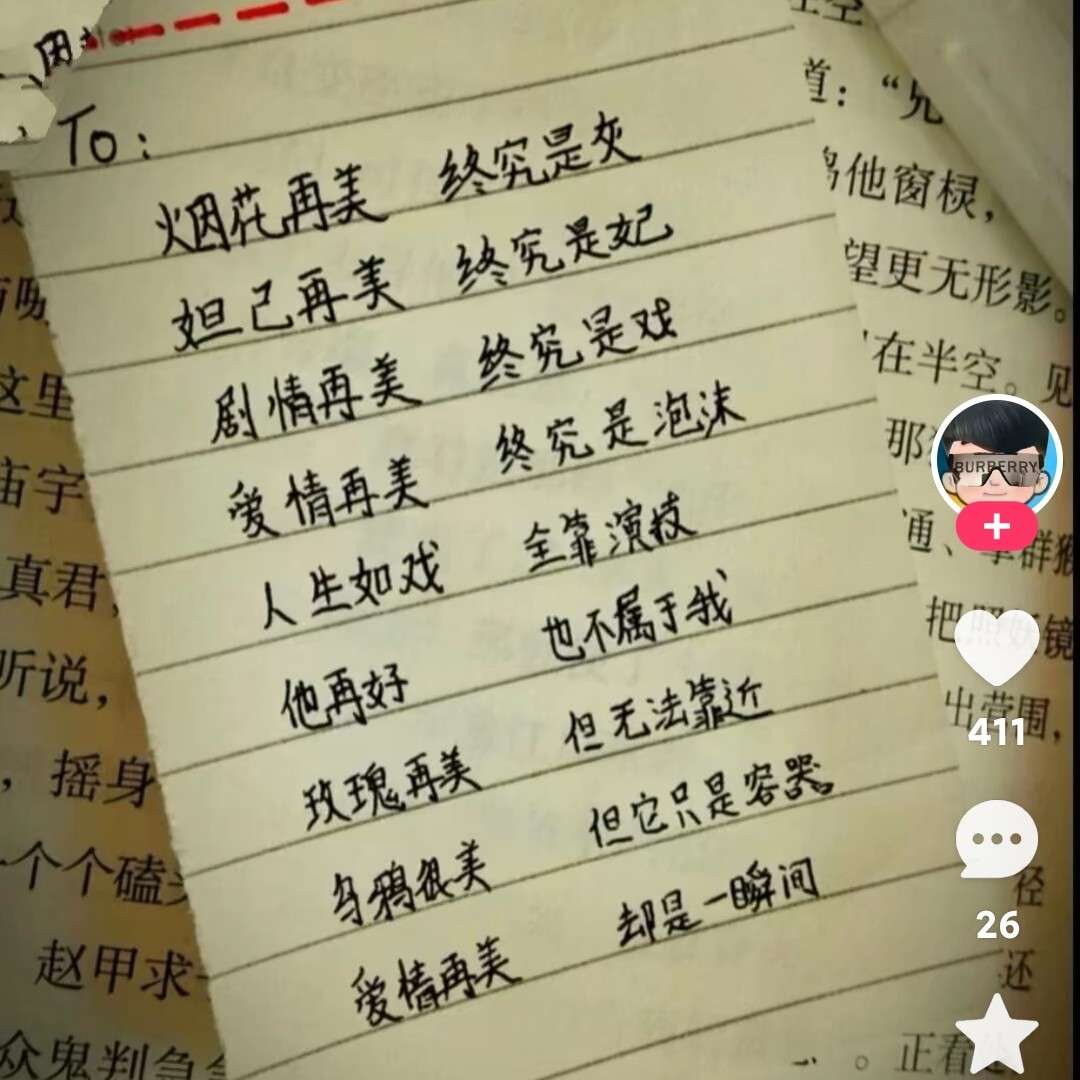 因
To:
烟花再美 终究是灰
妲己再美 终究是妃
剧情再美 终究是戏
爱情再美 终究是泡沫
人生如戏 全靠演技
他再好 也不属于我
玫瑰再美 但无法靠近
乌鸦很美 但它只是容器
爱情再美 却是一瞬间
这里
庙宇
真君,
听说,
,摇身
一个个磕
赵甲求
众鬼判急
空
道:“兄
他窗棂,
望更无形影。
在半空。见
那
通、掌群猴
把照妖镜
出营围,
径
还
。正看
BURPERRY
411
26